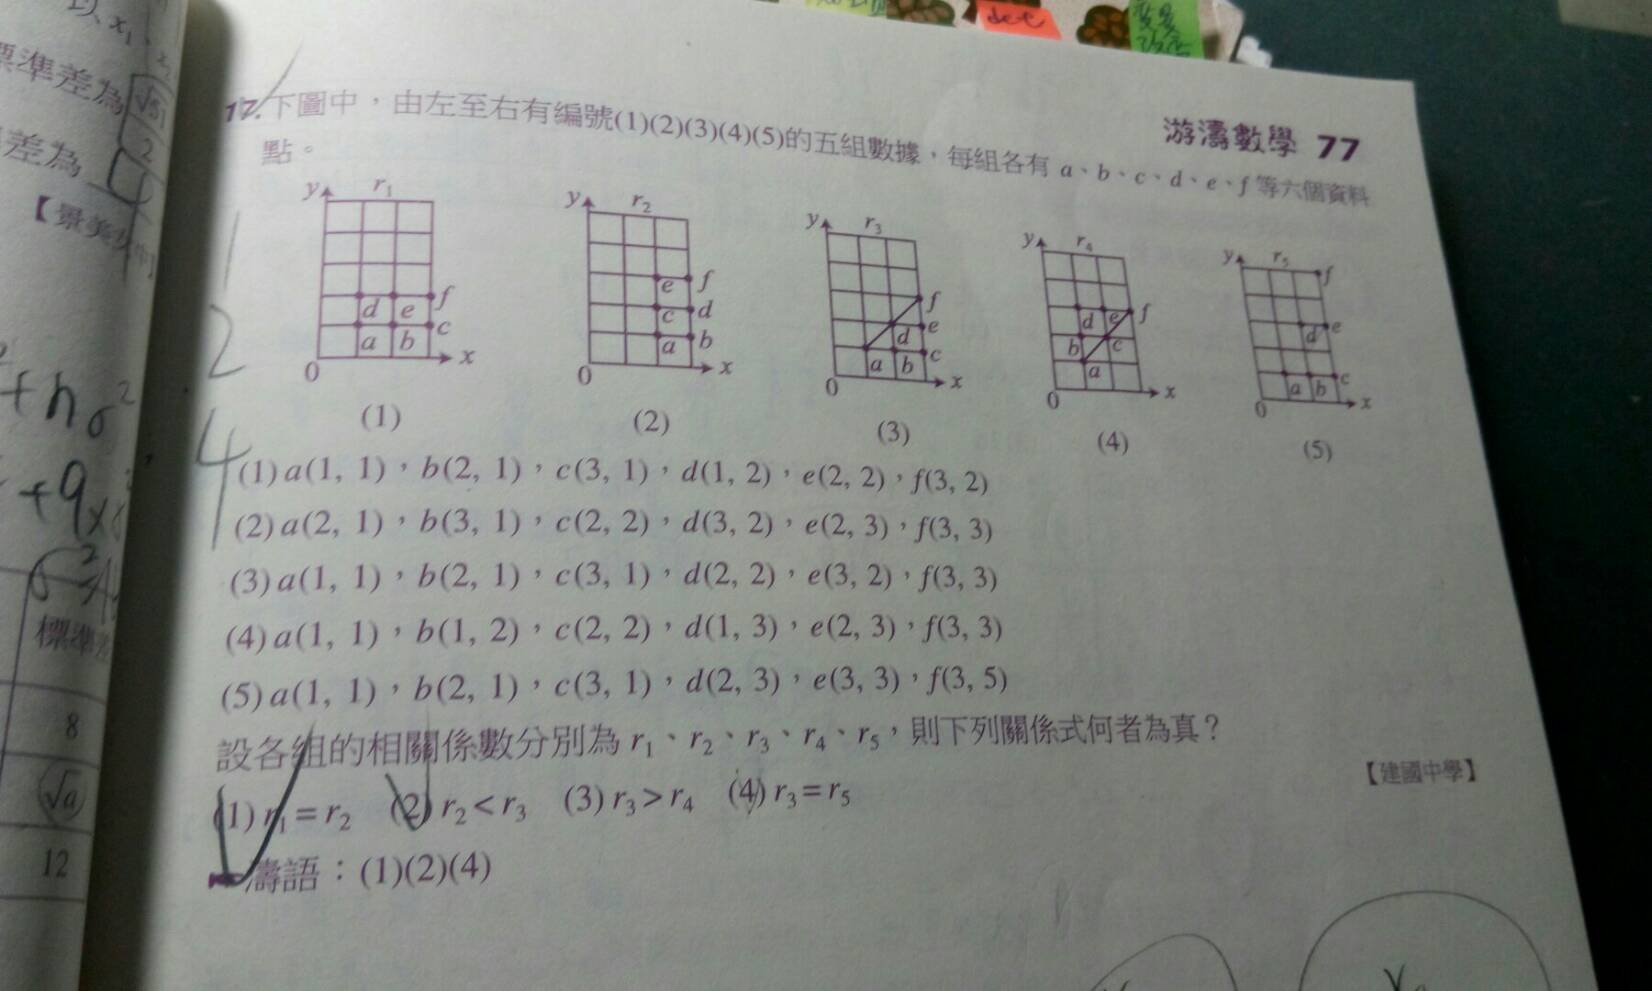 以 x₁、x₂
標準差為 √51/2
差為 4
【景美女中】
+nσ²
+9x
標準差
8
√a
12
det
游濤數學 77
17.下圖中，由左至右有編號(1)(2)(3)(4)(5)的五組數據，每組各有 a、b、c、d、e、f 等六個資料
點。
y r₁ d e f a b c 0 x
y r₂ e f c d a b 0 x
y r₃ f d e a b c 0 x
y r₄ d e f b c a 0 x
y r₅ f d e a b c 0 x
(1) (2) (3) (4) (5)
1
2
4
(1) a(1, 1)，b(2, 1)，c(3, 1)，d(1, 2)，e(2, 2)，f(3, 2)
(2) a(2, 1)，b(3, 1)，c(2, 2)，d(3, 2)，e(2, 3)，f(3, 3)
(3) a(1, 1)，b(2, 1)，c(3, 1)，d(2, 2)，e(3, 2)，f(3, 3)
(4) a(1, 1)，b(1, 2)，c(2, 2)，d(1, 3)，e(2, 3)，f(3, 3)
(5) a(1, 1)，b(2, 1)，c(3, 1)，d(2, 3)，e(3, 3)，f(3, 5)
設各組的相關係數分別為 r₁、r₂、r₃、r₄、r₅，則下列關係式何者為真？
【建國中學】
(1) r₁ = r₂ (2) r₂ < r₃ (3) r₃ > r₄ (4) r₃ = r₅
濤語：(1)(2)(4)